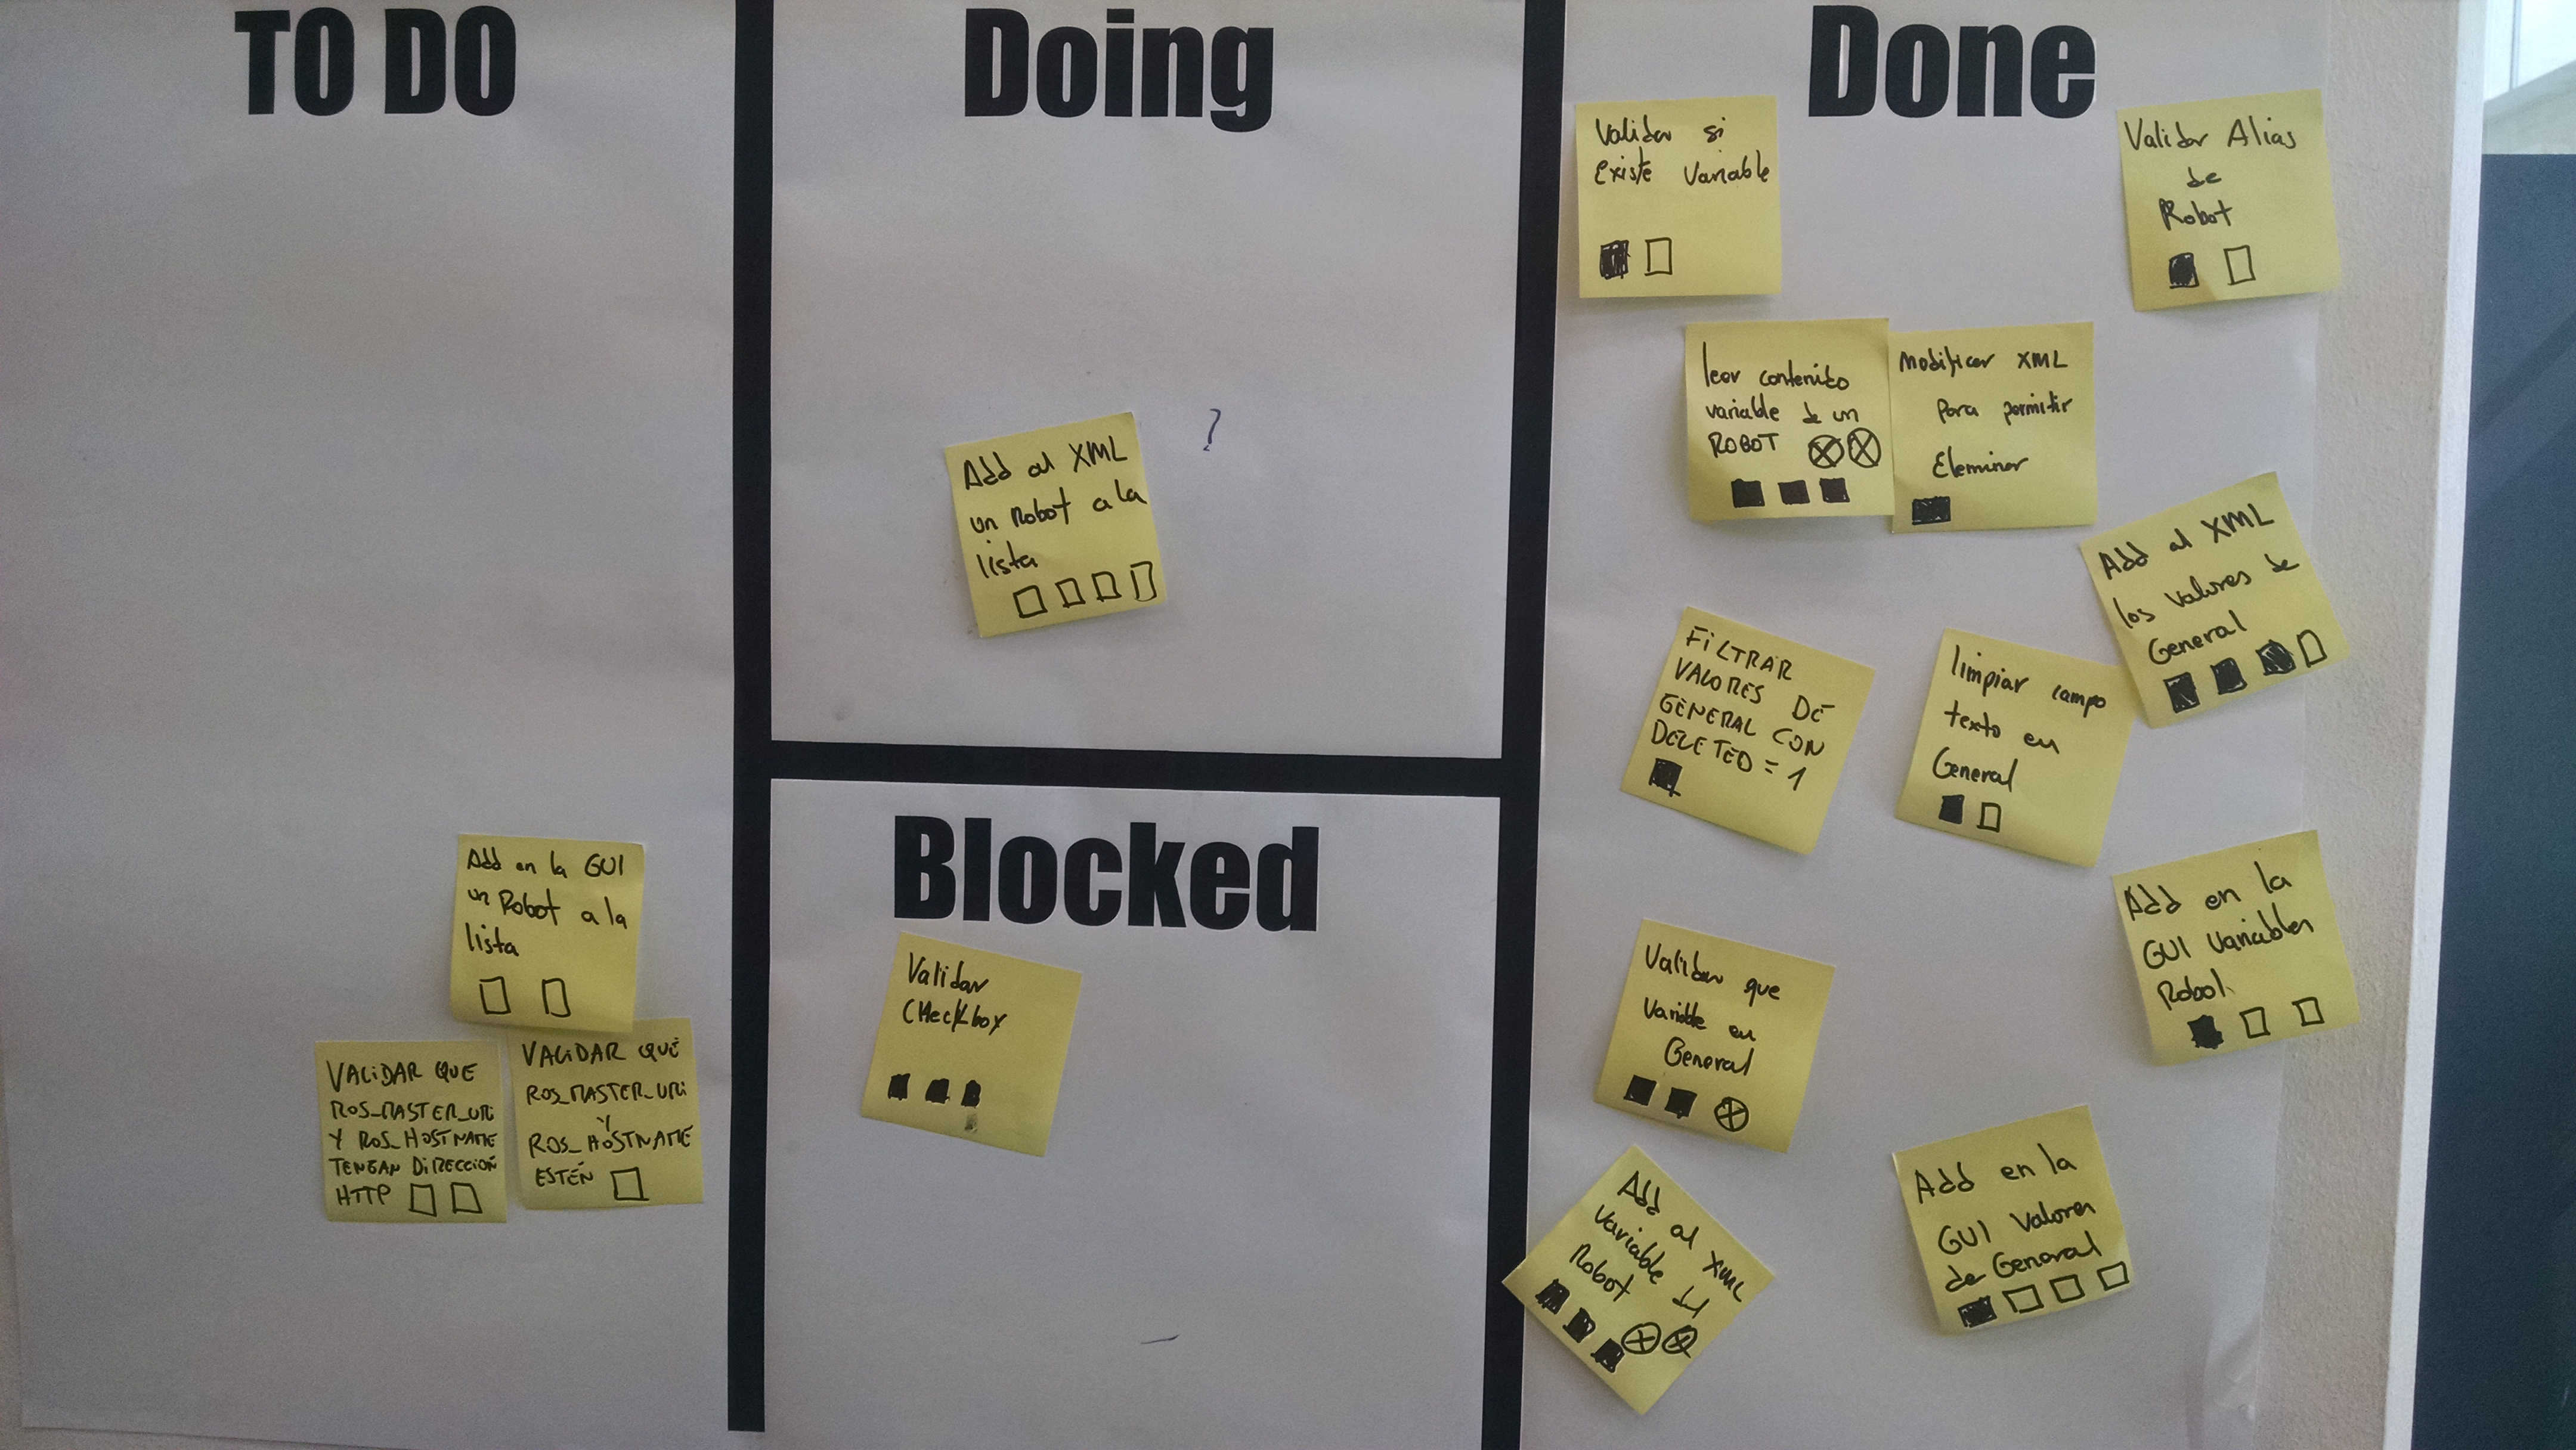 TO DO
Add en la GUI
un Robot a la
lista
VALiDAR QUE
ROS_MASTER_URi
Y ROS_HOSTNAME
TENGAN DiRECCiÓN
HTTP
VALiDAR QUE
ROS_MASTER_URi
Y
ROS_HOSTNAME
ESTÉN
Doing
Add al XML
un Robot a la
lista
?
Blocked
Validar
CHeckbox
Done
Validar si
Existe Variable
Validar Alias
de
Robot
leer contenido
variable de un
ROBOT
Modificar XML
Para permitir
Eleminar
Add al XML
los valores de
General
FiLTRAR
VALORES DE
GENERAL CON
DELETED = 1
limpiar campo
texto en
General
Add en la
GUI Variables
Robot.
Validar que
Variable en
General
Add al XML
Variable del
Robot
Add en la
GUI Valores
de General